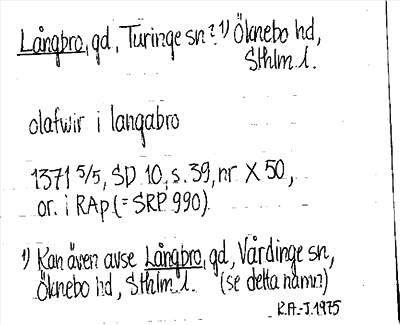 Långbro, gd, Turinge sn? ¹) Öknebo hd,
Sthlm l.
olafwir i langabro
1371 5/5, SD 10, s. 39, nr X 50,
or. i RAp (= SRP 990)
¹) Kan även avse Långbro, gd, Vårdinge sn,
Öknebo hd, Sthlm l. (se detta namn)
R.A.-J. 1975